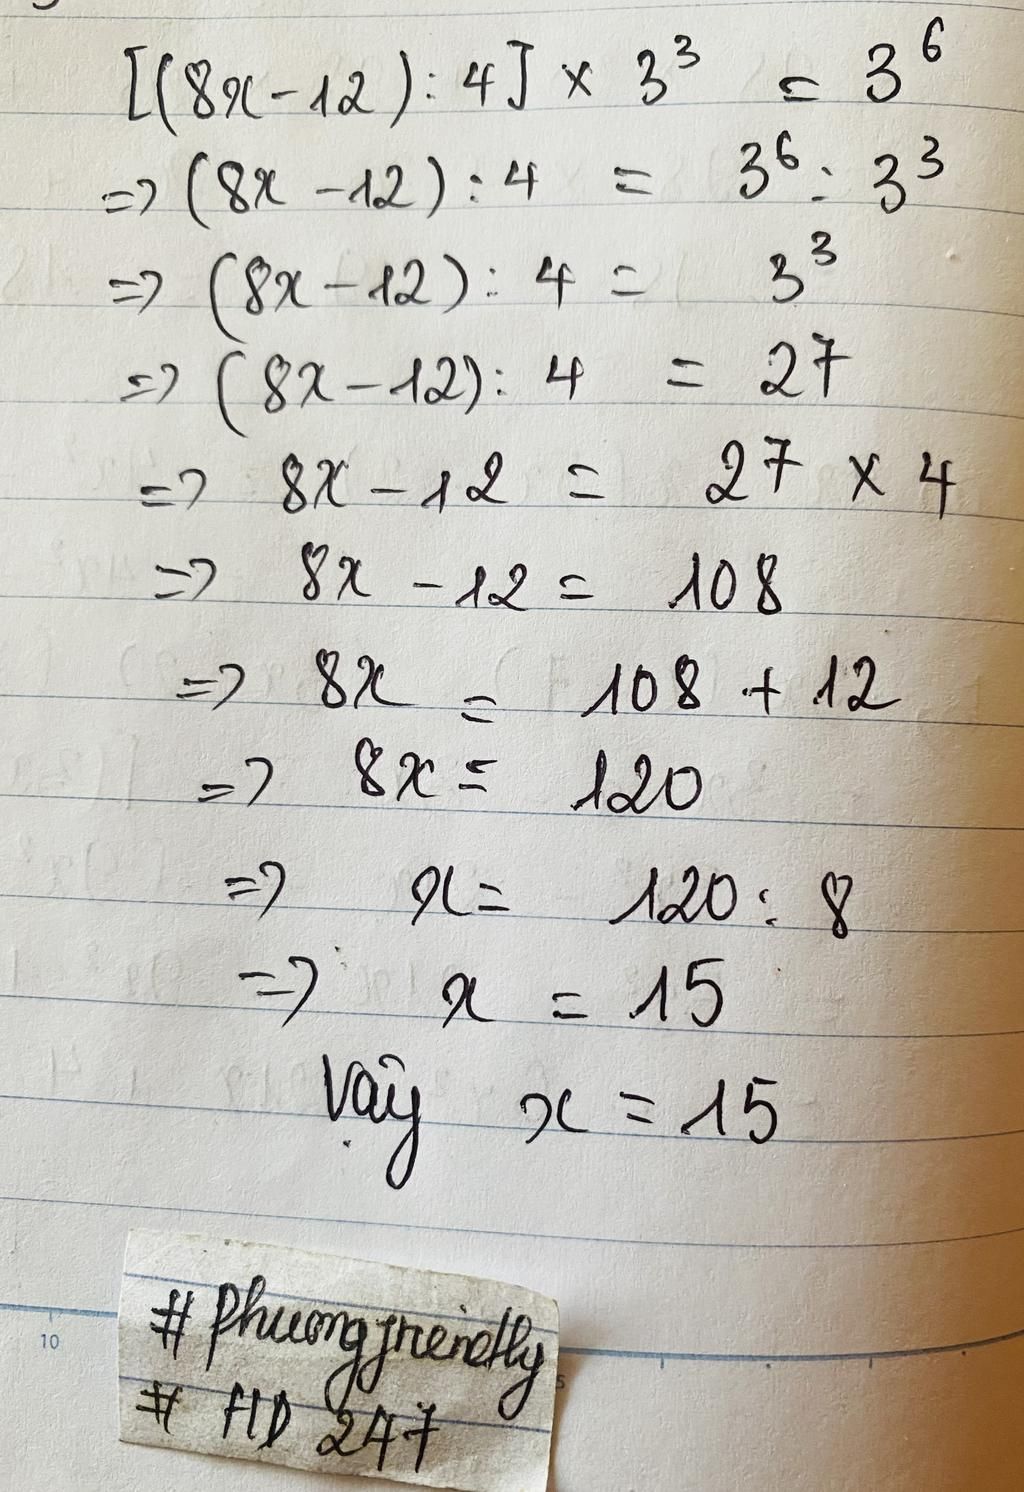 [(8x-12):4] × 3³ = 3⁶
=> (8x-12):4 = 3⁶:3³
=> (8x-12):4 = 3³
=> (8x-12):4 = 27
=> 8x-12 = 27 × 4
=> 8x-12 = 108
=> 8x = 108 + 12
=> 8x = 120
=> x = 120:8
=> x = 15
Vậy x = 15
10
# phuongfriendly
# HD 247